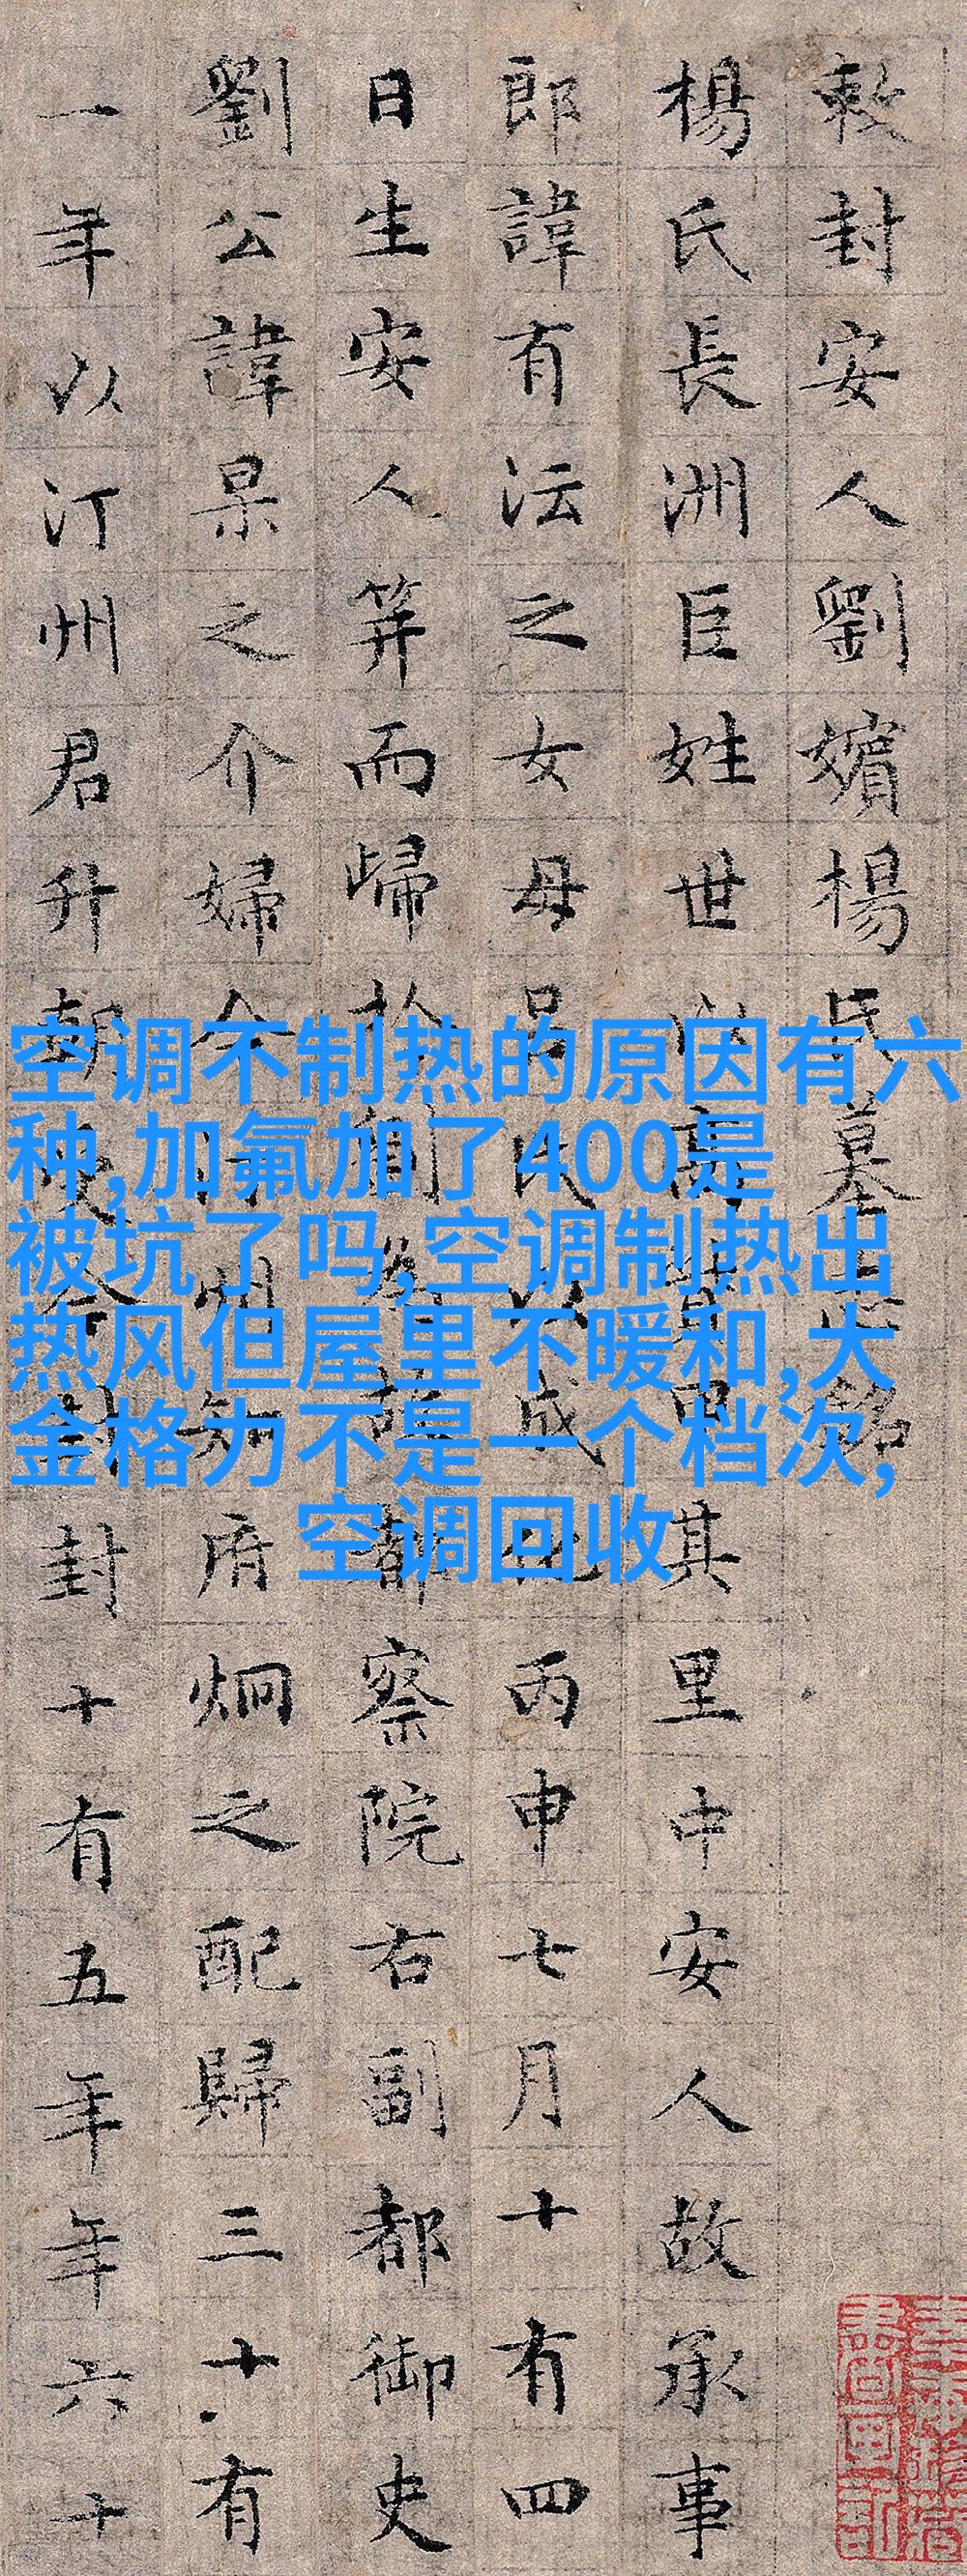 敕封安人劉嬪楊氏墓銘
楊氏長洲巨姓世以高甲其里中安人故承事
郎諱有沄之女母呂氏以成化丙申七月十有四
日生安人笄而歸於為故都察院右副都御史
劉公諱杲之介婦今汀州知府炯之配歸三十有
一年以汀州君升朝封十有五年年六十
空调不制热的原因有六
种,加氟加了400是
被坑了吗,空调制热出
热风但屋里不暖和,大
金格力不是一个档次,
空调回收